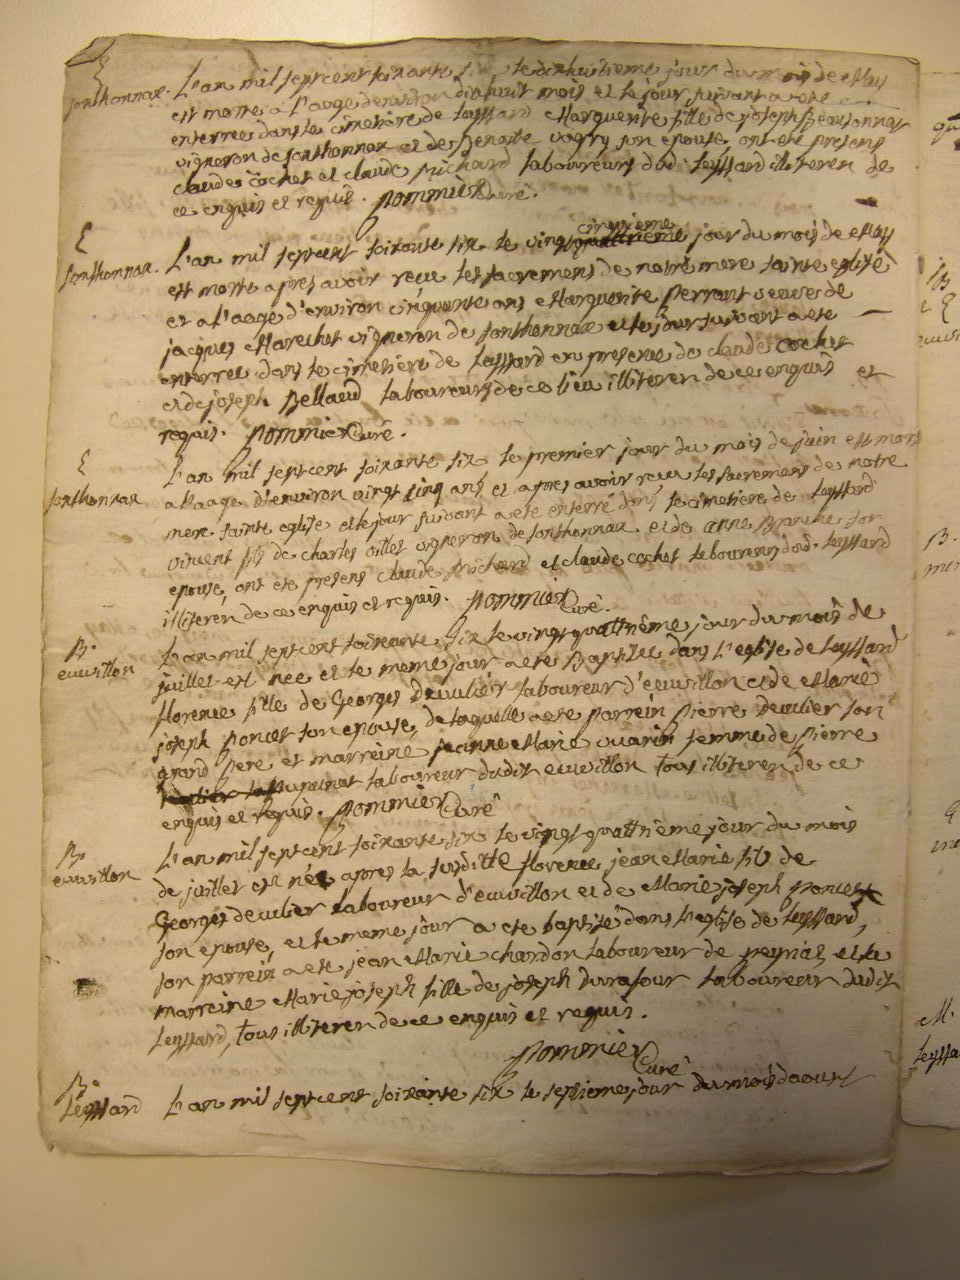 E
Sonthonnax. L'an mil septcent soixante six le dixhuitieme jour du mois de May
est morte a l'aage denviron dixhuit mois et le jour suivant a ete
enterrée dans le cimetiere de Leyssard Marguerite fille de joseph
vigneron de sonthonnax et de Benoite son epouse, ont eté presens
claude cochet et claude Michard laboureurs dud. Leyssard illiteren de
ce enquis et requis. Pommier Curé.
E
Sonthonnax. L'an mil septcent soixante six le vingt cinquieme jour du mois de May
est morte apres avoir reçu les sacremens de notre mere sainte eglise
et a l'aage d'environ cinquante ans Marguerite Perrant veuve de
jacques Marechet vigneron de sonthonnax et le jour suivant a ete
enterrée dans le cimetiere de Leyssard en presence de claude cochet
et de joseph Bellaud laboureurs de ce lieu illiteren de ce enquis et
requis. Pommier Curé.
E
Sonthonnax L'an mil septcent soixante six le premier jour du mois de juin est mort
a l'aage d'environ vingt cinq ans et apres avoir reçu les sacremens de notre
mere sainte eglise et le jour suivant a ete enterré dans le cimetiere de Leyssard
vincent fils de charles oillet vigneron de sonthonnax et de anne son
epouse, ont eté presens claude Michard et claude cochet laboureurs dud. Leyssard
illiteren de ce enquis et requis. Pommier Curé.
B.
euvillon L'an mil septcent soixante six le vingt quattrième jour du mois de
juillet est née et le meme jour a ete Baptisée dans l'eglise de Leyssard
florence fille de Georges Devulier laboureur d'euvillon et de Marie
joseph Poncet son epouse, de laquelle a ete parrein Pierre Devulier son
grand pere et marreine jeanne Marie femme de Pierre
laboureur dudit euvillon tous illiteren de ce
enquis et requis. Pommier Curé
B.
euvillon L'an mil septcent soixante six le vingt quattrième jour du mois
de juillet est né apres la susditte florence, jean Marie fils de
Georges devulier laboureur d'euvillon et de Marie joseph Poncet
son epouse, et le meme jour a ete baptisé dans l'eglise de Leyssard,
son parrein a ete jean Marie chardon laboureur de peyriat et la
marreine Marie joseph fille de joseph Durafour laboureur dudit
Leyssard, tous illiteren de ce enquis et requis.
Pommier Curé
B.
Leyssard L'an mil septcent soixante six le septieme jour du mois daoust